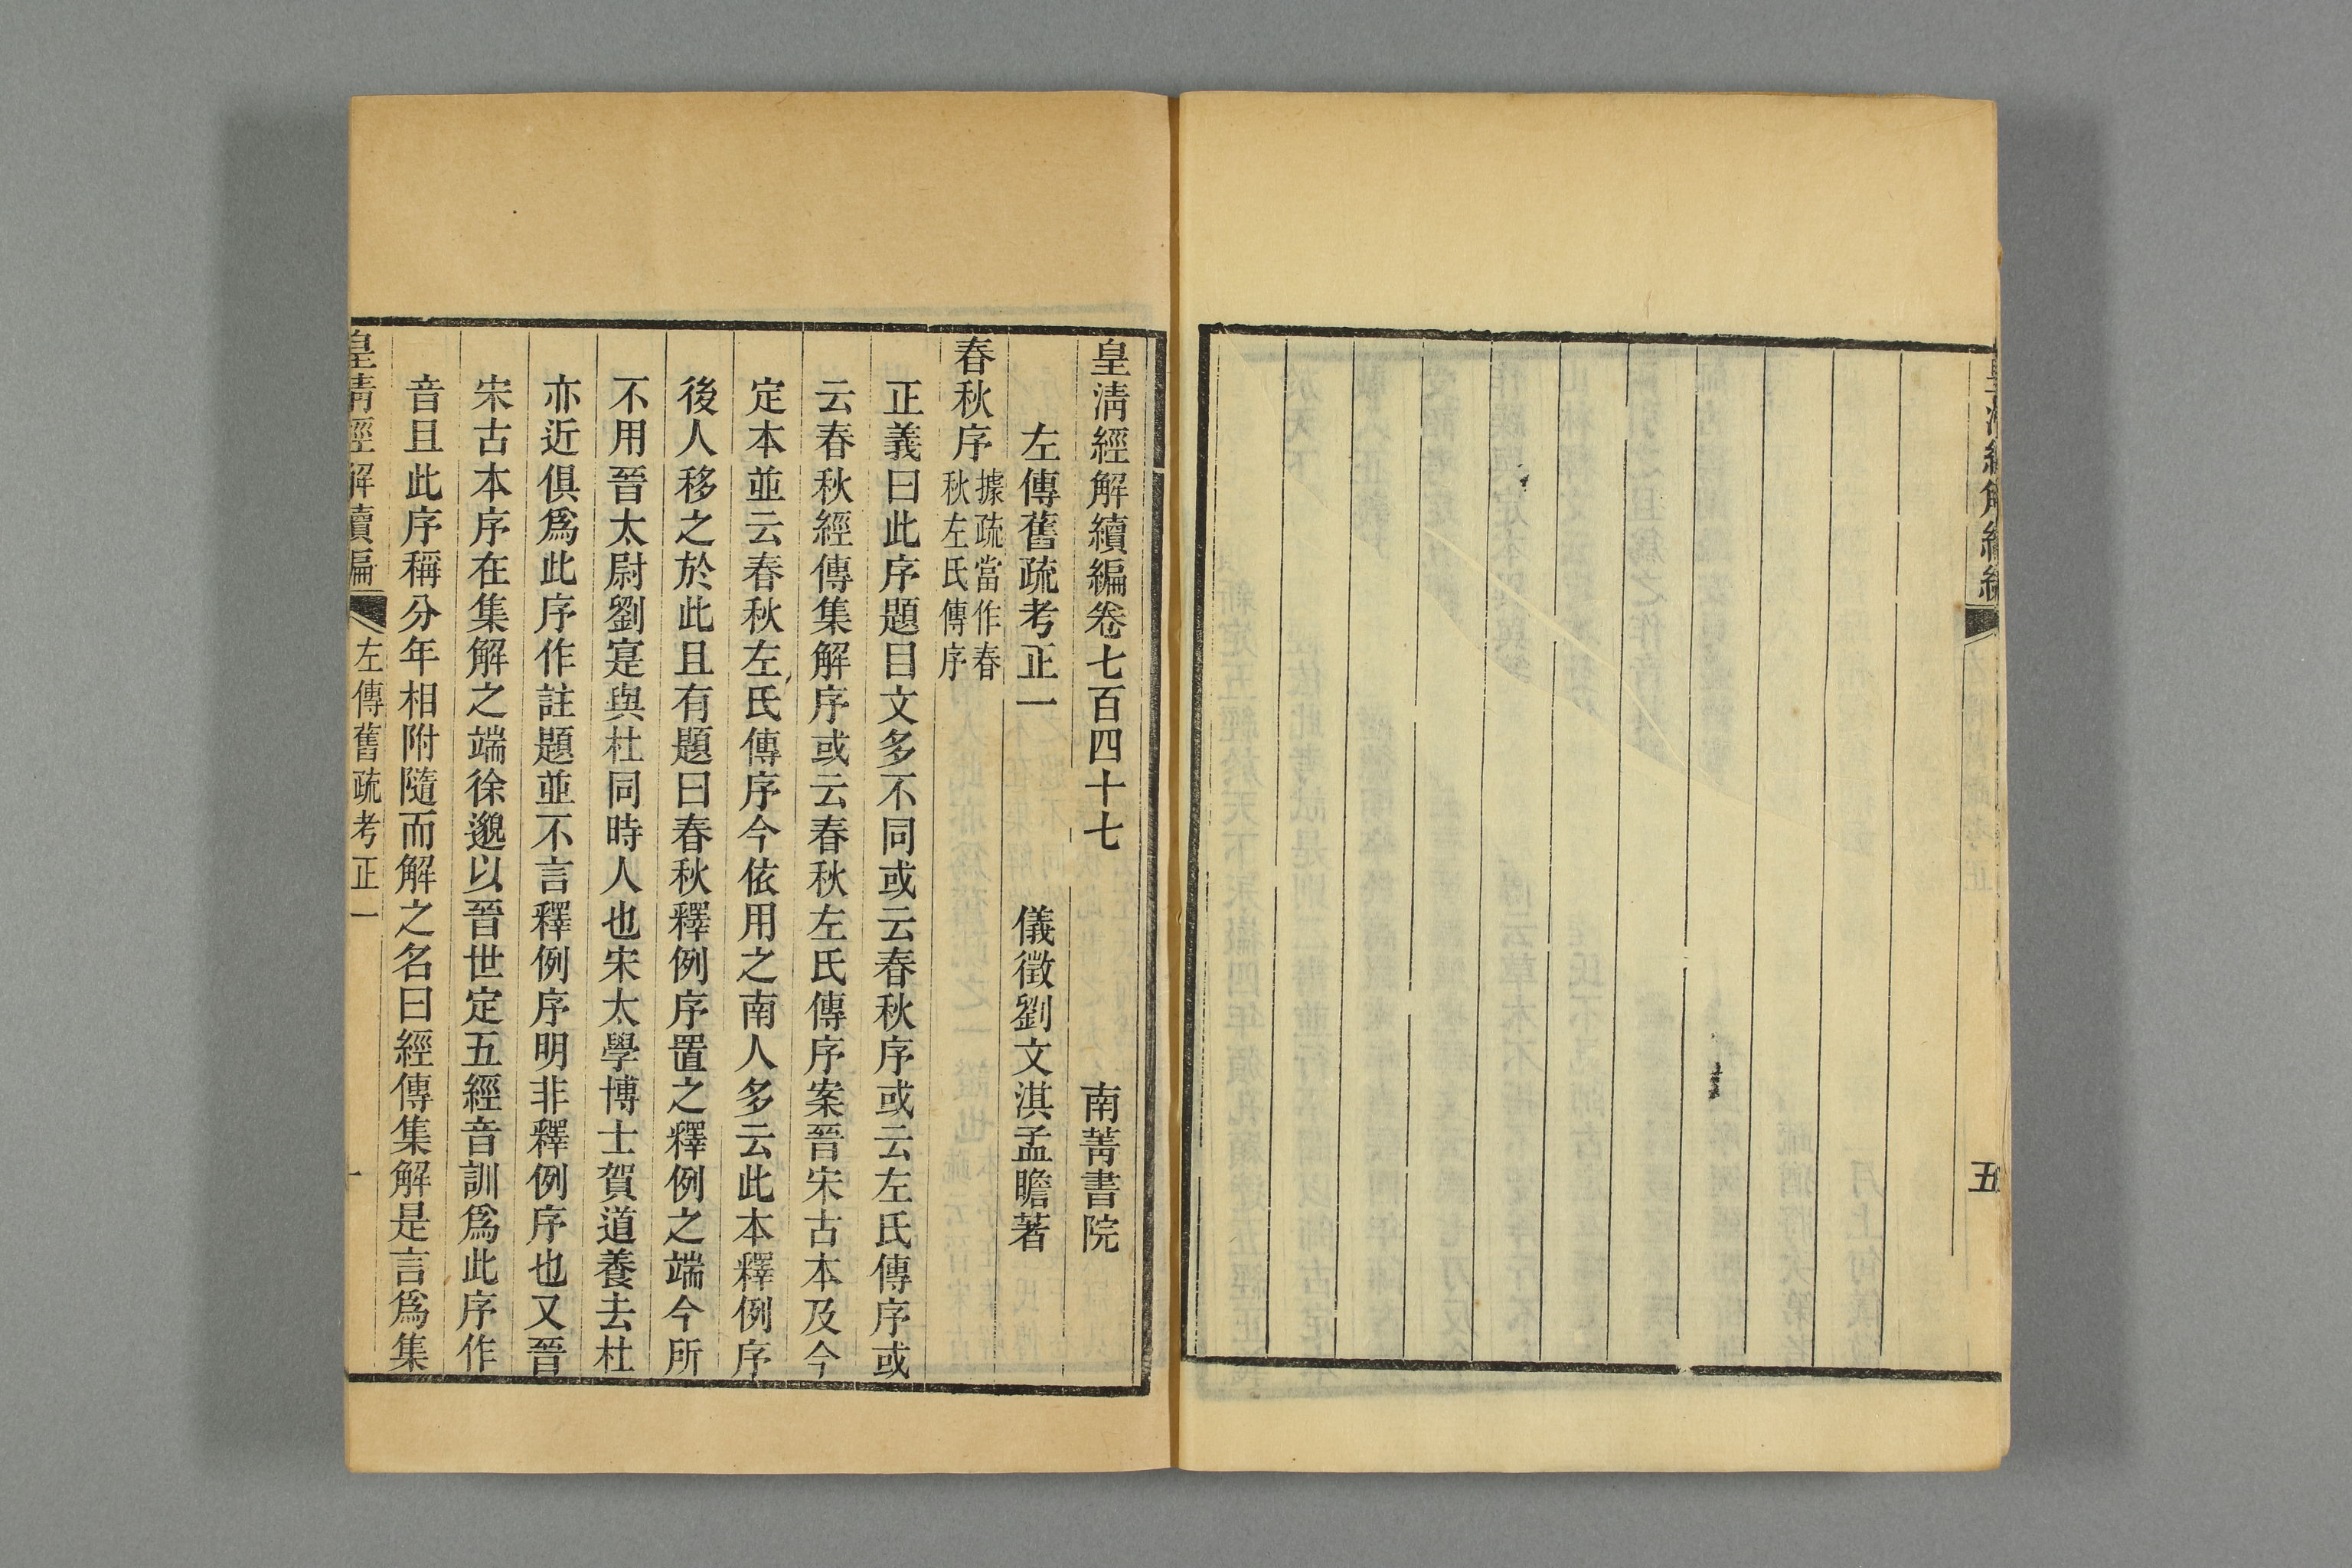 五
皇清經解續編卷七百四十七　南菁書院
左傳舊疏考正一　儀徵劉文淇孟瞻著
春秋序 據疏當作春
秋左氏傳序
正義曰此序題目文多不同或云春秋序或云左氏傳序或
云春秋經傳集解序或云春秋左氏傳序案晉宋古本及今
定本並云春秋左氏傳序今依用之南人多云此本釋例序
後人移之於此且有題曰春秋釋例序置之釋例之端今所
不用晉太尉劉寔與杜同時人也宋太學博士賀道養去杜
亦近俱爲此序作註題並不言釋例序明非釋例序也又晉
宋古本序在集解之端徐邈以晉世定五經音訓爲此序作
音且此序稱分年相附隨而解之名曰經傳集解是言爲集
皇清經解續編　左傳舊疏考正一